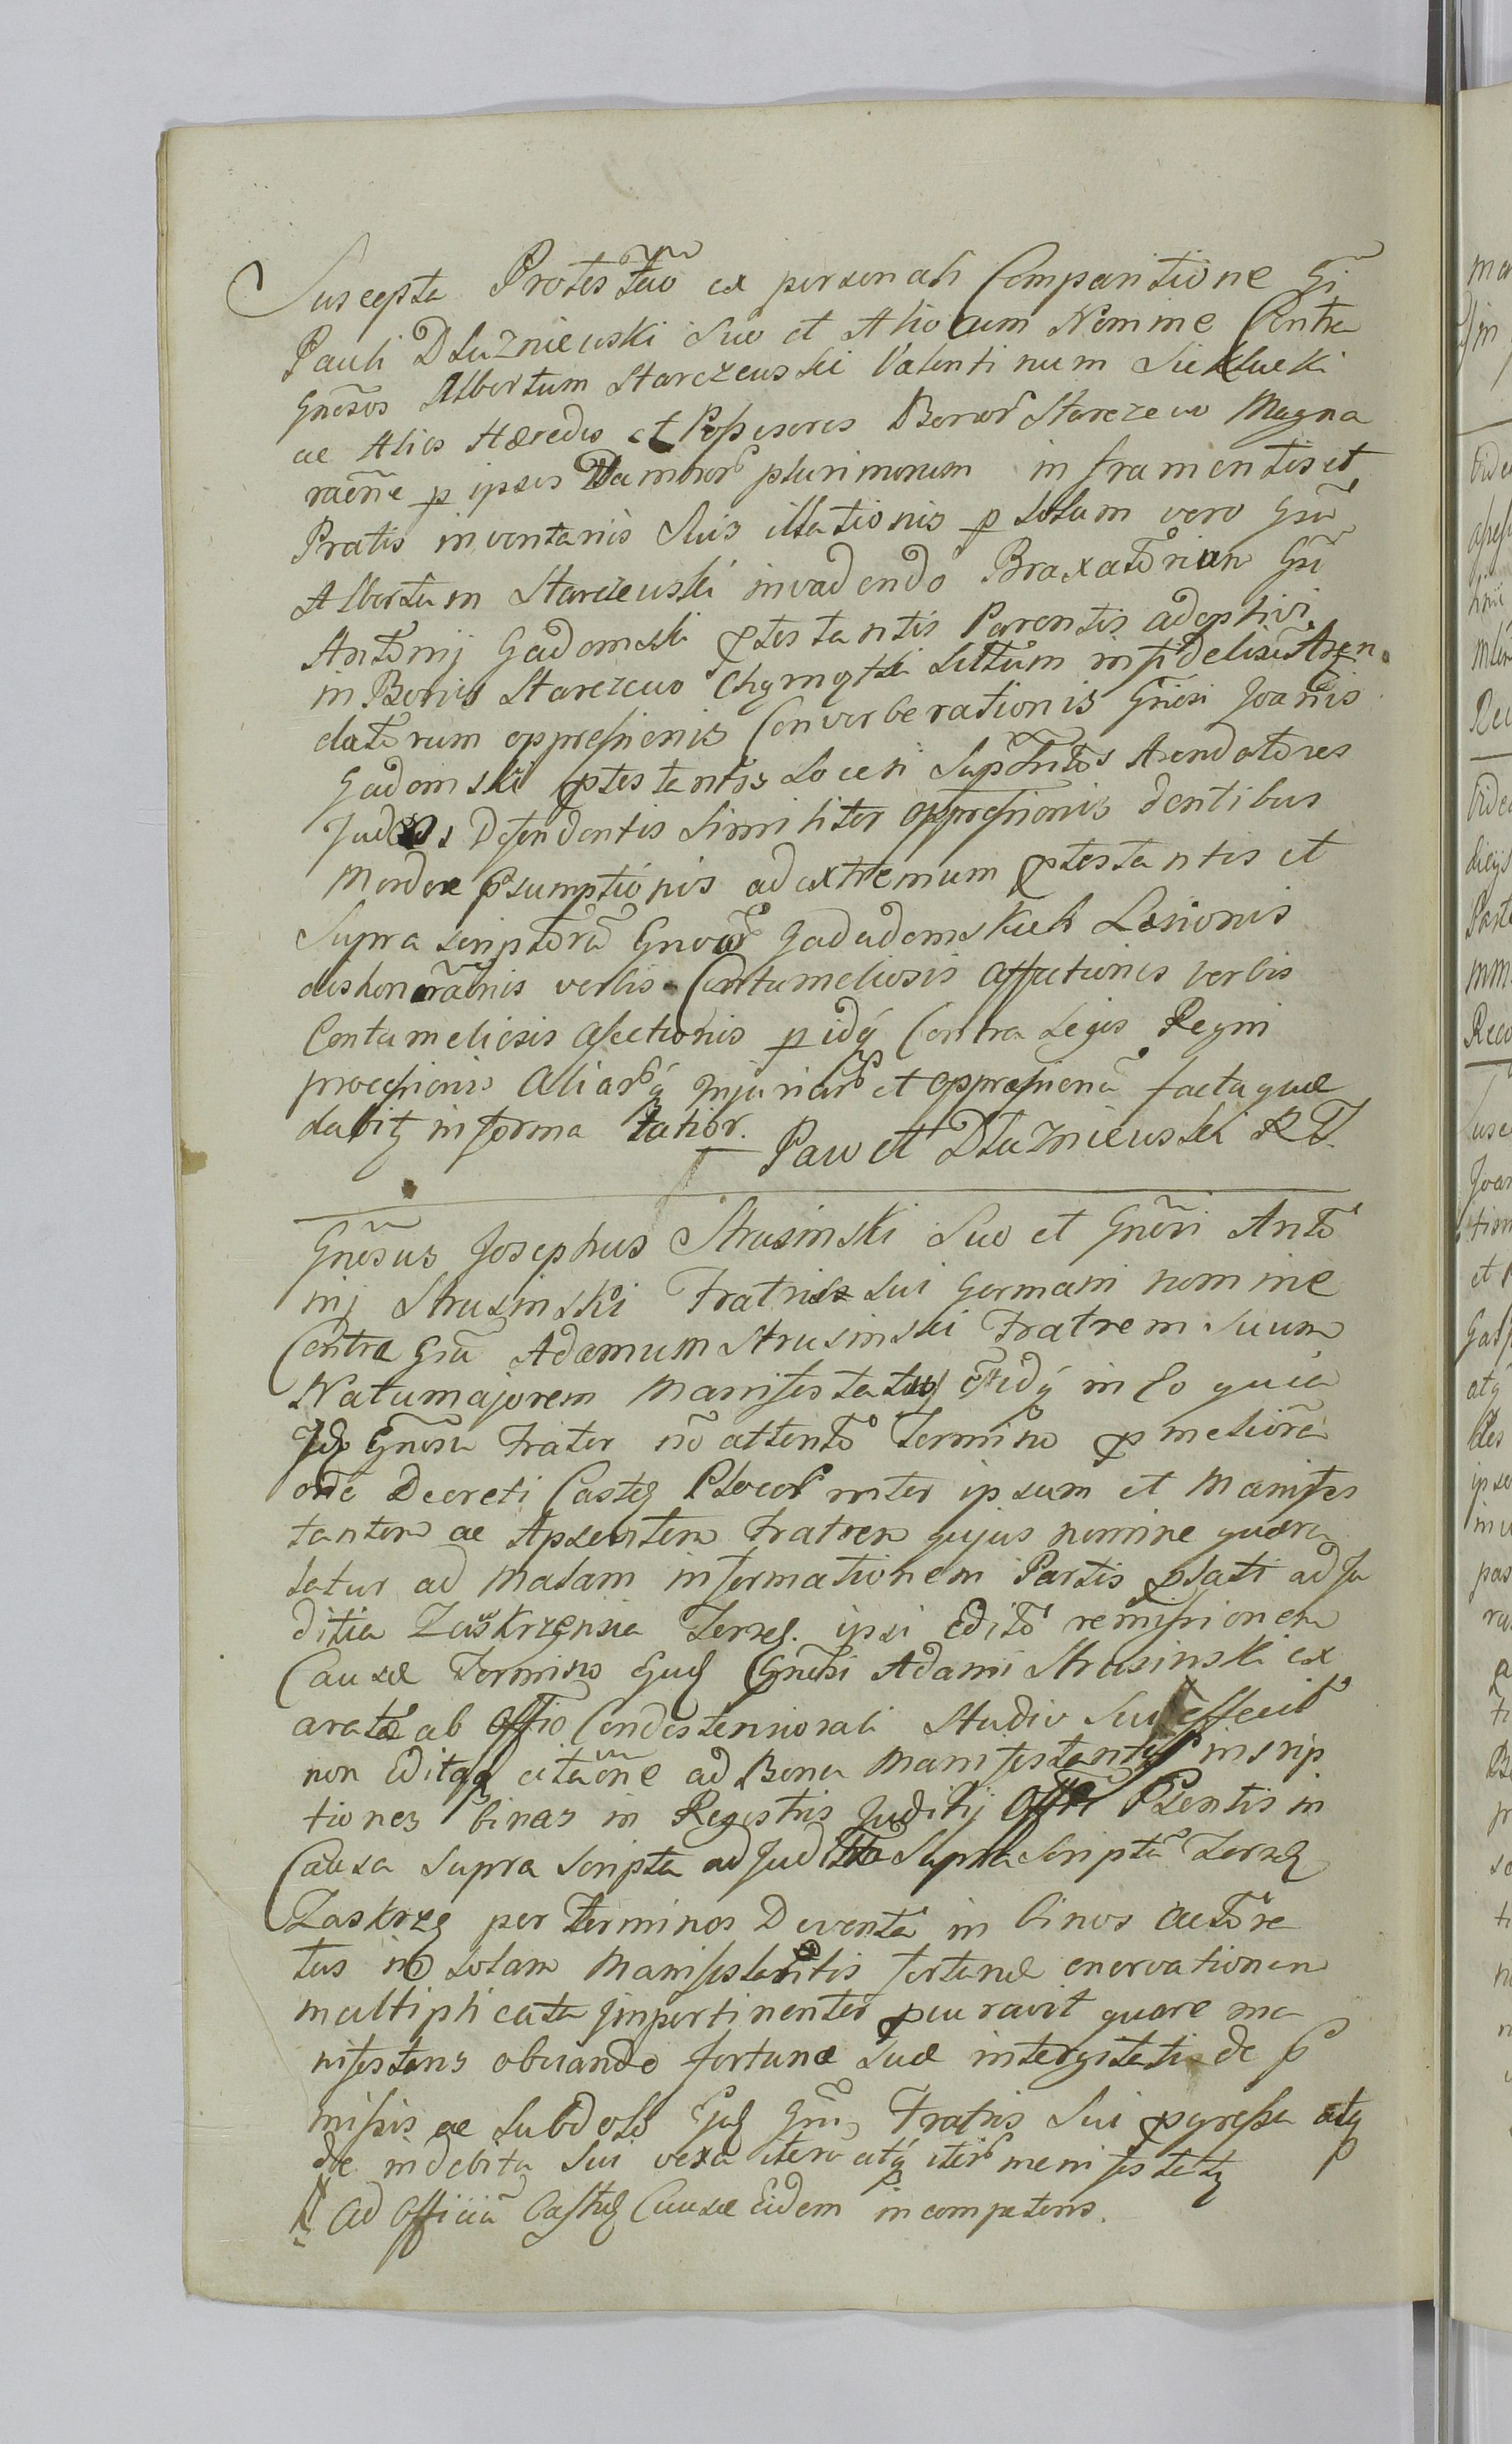 Suscepta Protestão ex personali Comparitione Gi
Pauli Dłuzniewski Suo et Aliorum Nomine Contra
Gnosos Albertum Starczewski Valentinum
ac Alios Hæredes et Possesores Bonor Starczewo Magna
raõne p ipsos Damnor plurimorum in framentis et
Pratis inventariis Suis illationis p Solum vero Gnũ
Albertum Starczewski invadendo Braxatorian Gni
Antonij Gadomski ptestantis Parentis adoptivi
in Bonis Starczewo infideliũ Aren
datorum oppressionis Converberationis Gnosi Joañis
Gadomski ptestantis Loceri Suptõs Arendatores
Judæos Defendentis Similiter oppressionis dentibus
Mordere psumptionis ad extremum ptestantis et
Supra scriptorũ Gnror Læsionis
dishonoraõnis verbis Contumeliosis affectionis verbis
Contumeliosis afectionis p idq Contra Leges Regni
processionis Aliarq Injuriar et oppressionũ facta quæ
dabit in forma latior. Paweł Dłuzniewski
Gnosus Josephus Strusinski Suo et Gnõsi Anto
nij Strusinski Fratris Sui Germani nomine
Contra Gnũ Adamum Strusinski Fratrem Suum
Natumajorem Manifestatus e idq in Eo quia
Gnosus Frater nõ attento Termino p meliorẽ
onẽ Decreti Castr Plocen inter ipsum et Manifes
tantem ac Apsentem Fratrem qujus nomine quæru
latur ad malam informationem Partis ptati ad Ju
ditia Zaskrzensia Terres. ipsi Edito remissionem
Causæ Termino Gnosi Adami Strusinski ex
aratæ ab Offio Condestensionali Studio Sui effecit
non editaq citaõne ad Bona Manifestantis inscrip
tiones binas in Registris Juditij Offii Psentis in
Causa Supra Scripta ad Judia Supra Scripta Terres
Zaskrze per Terminos Deventa in binos actore
tus in Solam Manifestantis fortunæ enervationem
multiplicata Jmpertinenter pcuravit quare ma
nifestans obviando fortunæ Suæ integritati de p
missis ac Subdolo Fratris Sui pgressu atq
de indebita Sui vexa iterũ atq iter manifestatq
Ad Officiũ Castr Causæ Eidem incompetens.